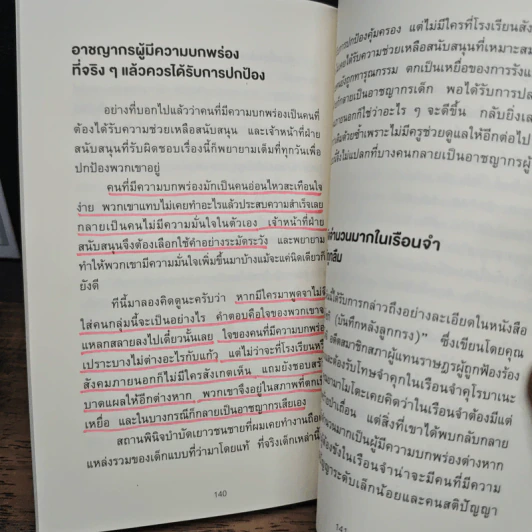 อาชญากรผู้มีความบกพร่อง
ที่จริง ๆ แล้วควรได้รับการปกป้อง
อย่างที่บอกไปแล้วว่าคนที่มีความบกพร่องเป็นคนที่
ต้องได้รับความช่วยเหลือสนับสนุน และเจ้าหน้าที่ฝ่าย
สนับสนุนที่รับผิดชอบเรื่องนี้ก็พยายามเต็มที่ทุกวันเพื่อ
ปกป้องพวกเขาอยู่
คนที่มีความบกพร่องมักเป็นคนอ่อนไหวสะเทือนใจ
ง่าย พวกเขาแทบไม่เคยทำอะไรแล้วประสบความสำเร็จเลย
กลายเป็นคนไม่มีความมั่นใจในตัวเอง เจ้าหน้าที่ฝ่าย
สนับสนุนจึงต้องเลือกใช้คำอย่างระมัดระวัง และพยายาม
ทำให้พวกเขามีความมั่นใจเพิ่มขึ้นมาบ้างแม้จะแค่นิดเดียวก็
ยังดี
ทีนี้มาลองคิดดูนะครับว่า หากมีใครมาพูดจาไม่
ใส่คนกลุ่มนี้จะเป็นอย่างไร คำตอบคือใจของพวกเขา
แหลกสลายลงไปเดี๋ยวนั้นเลย ใจของคนที่มีความบกพร่อง
เปราะบางไม่ต่างอะไรกับแก้ว แต่ไม่ว่าจะที่โรงเรียน
สังคมภายนอกก็ไม่มีใครสังเกตเห็น แถมยังชอบ
บาดแผลให้อีกต่างหาก พวกเขาจึงอยู่ในสภาพที่ตก
เหยื่อ และในบางกรณีก็กลายเป็นอาชญากรเสียเอง
สถานพินิจบำบัดเยาวชนชายที่ผมเคยทำงานถือ
แหล่งรวมของเด็กแบบที่ว่ามาโดยแท้ ที่จริงเด็กเหล่านี้
140
การปกป้องคุ้มครอง แต่ไม่มีใครที่โรงเรียน
ได้รับความช่วยเหลือสนับสนุนที่เหมาะสม
ถูกทารุณกรรม ตกเป็นเหยื่อของการ
กลายเป็นอาชญากรเด็ก พอได้รับการ
นอกก็ใช่ว่าอะไร ๆ จะดีขึ้น กลับยิ่ง
ด้วยซ้ำเพราะไม่มีครูช่วยดูแลให้อีกต่อไป
ไม่แปลกที่บางคนกลายเป็นอาชญากร
จำนวนมากในเรือนจำ
ได้รับการกล่าวถึงอย่างละเอียดในหนังสือ
(บันทึกหลังลูกกรง)” ซึ่งเขียนโดยคุณ
อดีตสมาชิกสภาผู้แทนราษฎรผู้ถูกฟ้องร้อง
ต้องรับโทษจำคุกในเรือนจำคุโรบาเนะ
ยามาโมโตะเคยคิดว่าในเรือนจำต้องมีแต่
เถื่อน แต่สิ่งที่เขาได้พบกลับกลาย
จำนวนมากเป็นผู้มีความบกพร่องต่างหาก
ในเรือนจำน่าจะมีคนที่มีความ
ระดับเล็กน้อยและคนสติปัญญา
141